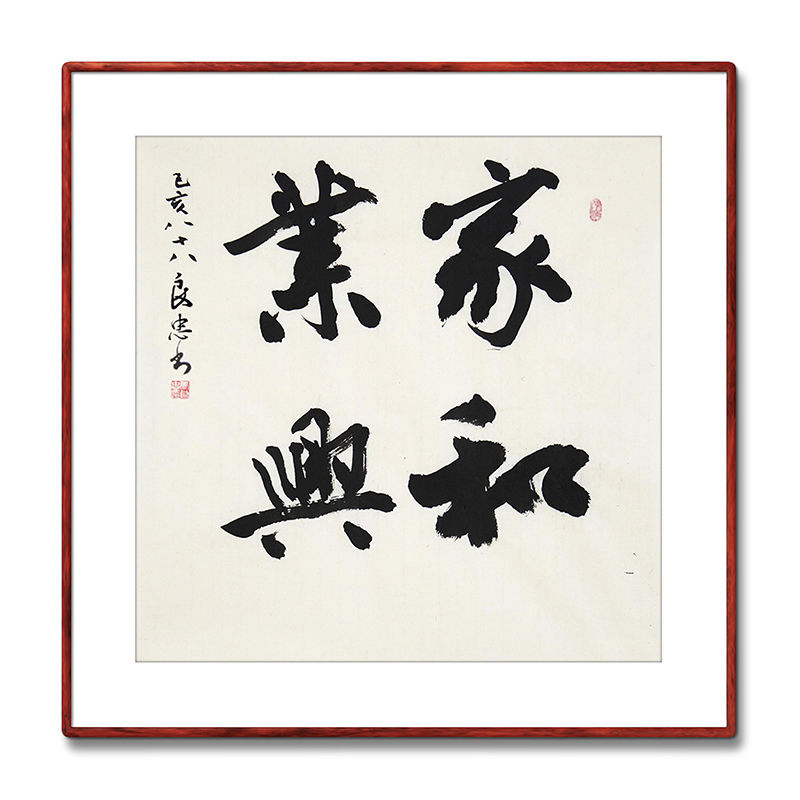 家和
業興
己亥八十八良忠书